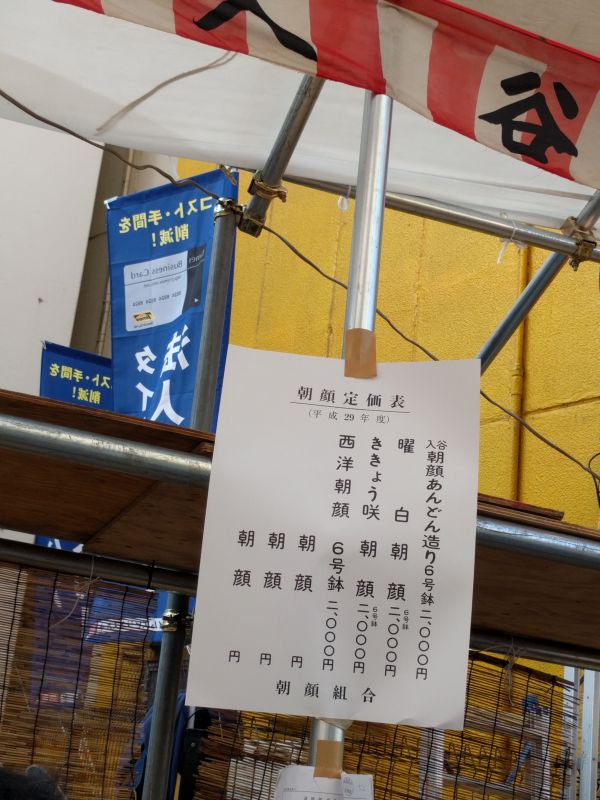 谷
コスト・手間を
削減!
Business Card
法
人
タ
イ
コスト・手間を
削減!
朝顔定価表
(平成29年度)
入谷朝顔あんどん造り6号鉢二、〇〇〇円
曜白朝顔6号鉢二、〇〇〇円
ききょう咲朝顔6号鉢二、〇〇〇円
西洋朝顔6号鉢二、〇〇〇円
朝顔円
朝顔円
朝顔円
朝顔組合